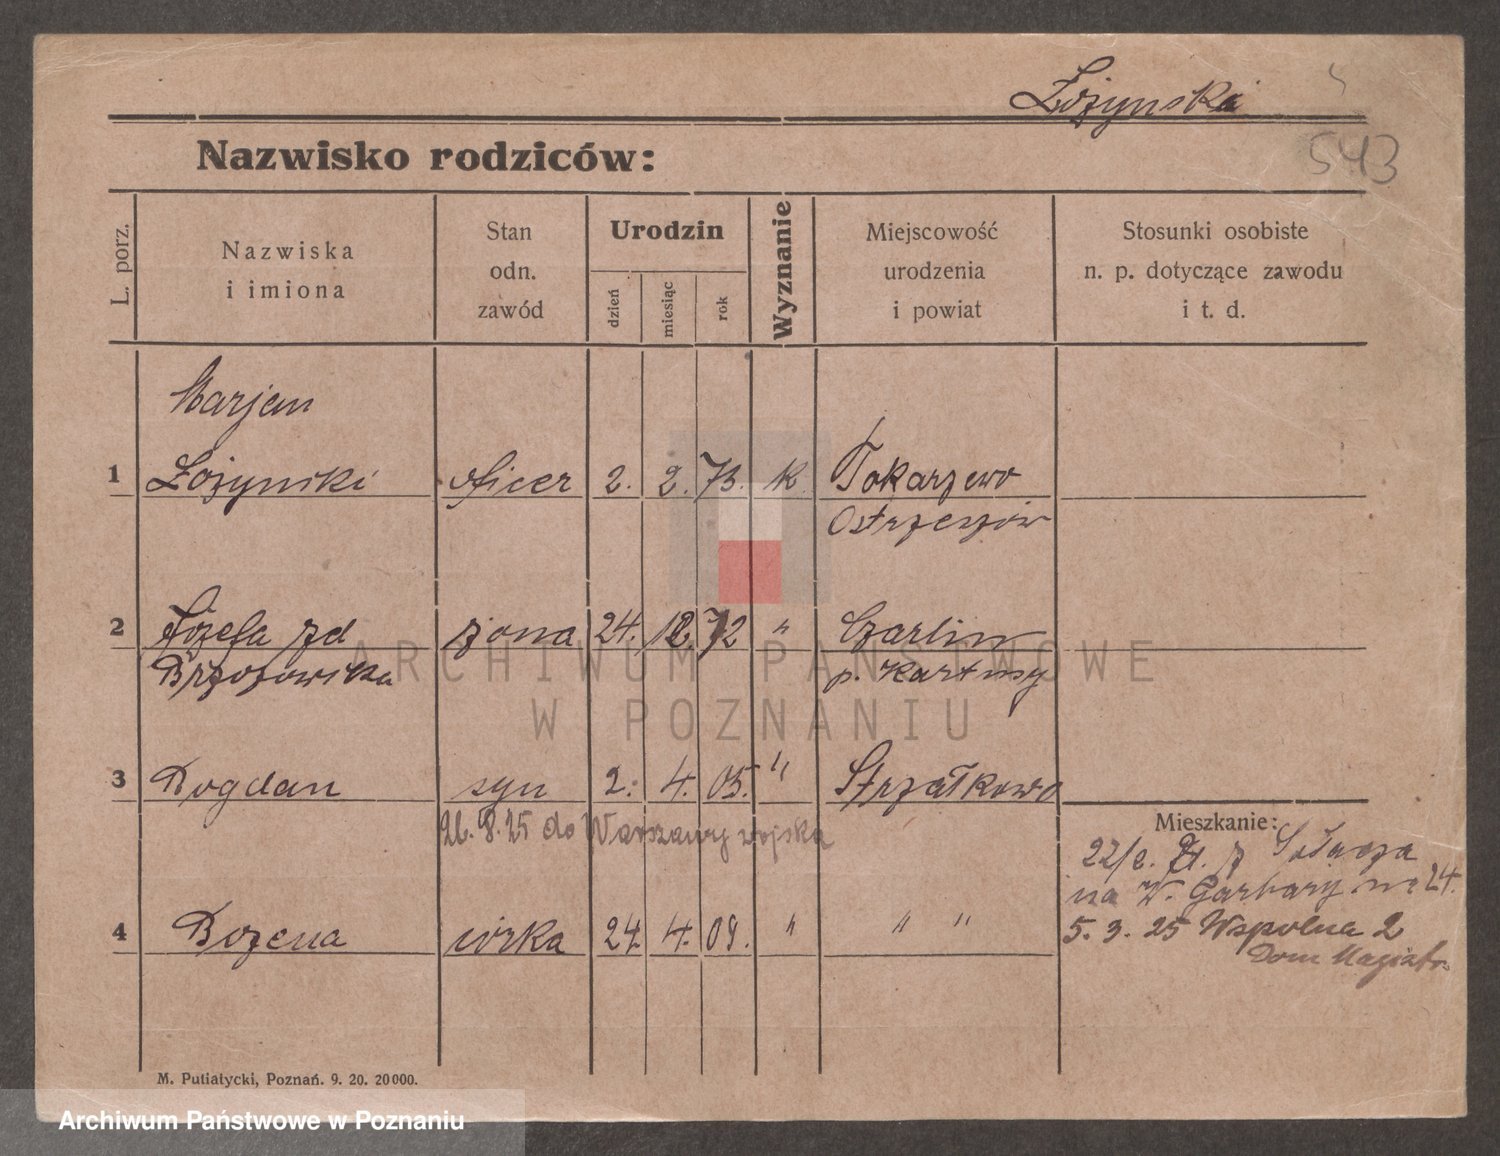 Łożyński
543
Nazwisko rodziców:
L. porz.
Nazwiska
i imiona
Stan
odn.
zawód
Urodzin
dzień
miesiąc
rok
Wyznanie
Miejscowość
urodzenia
i powiat
Stosunki osobiste
n. p. dotyczące zawodu
i t. d.
Marjan
1 Łożyński oficer 2. 2. 73. k. Tokarzewo
Ostrzeszów
2 Józefa zd żona 24. 12. 72 " Czarlin
Brzozowska p. Kartuzy
3 Bogdan syn 2. 4. 05. " Strzałkowo
26. 8. 25 do Warszawy wojska
Mieszkanie:
22/2. 21. z Sołacza
na W. Garbary nr 24.
4 Bożena córka 24. 4. 09. " " "
5. 3. 25 Wspolna 2
Dom Magistr.
M. Putiatycki, Poznań. 9. 20. 20000.
ARCHIWUM PAŃSTWOWE
W POZNANIU
Archiwum Państwowe w Poznaniu